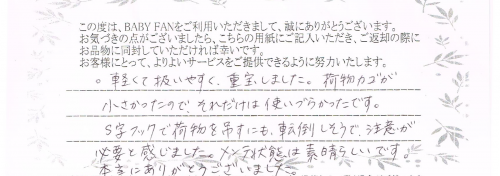 この度は、BABY FANをご利用いただきまして、誠にありがとうございます。
お気づきの点がございましたら、こちらの用紙にご記入いただき、ご返却の際に
お品物に同封していただければ幸いです。
お客様にとって、よりよいサービスをご提供できるように努力いたします。
○ 軽くて扱いやすく、重宝しました。荷物カゴが
小さかったので、それだけは使いづらかったです。
S字フックで荷物を吊すにも、転倒しそうで、注意が
必要と感じました。メンテ状態は素晴らしいです。
本当にありがとうございました。